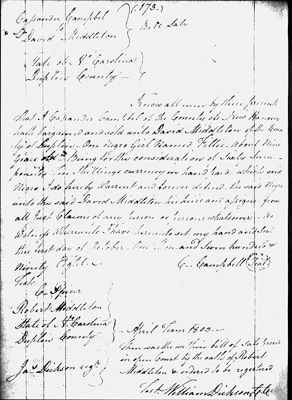 Capander Campbel (173)
To Bill Sale
David Middleton
State of No Carolina
Duplin County
Know all men by these presents
That I Capander Campbel of the County of New Hanover
hath bargained and sold unto David Middleton of the Coun
ty of Duplin One Negro Girl Named about Nine
years old Being for the consideration of Sixty Seven
pounds Ten Shillings currency in hand paid which said
Negro I do hereby Warrent and forever defend the said Negro
unto the said David Middleton his heirs and assigns from
all Just Claims of any person or persons whatsoever As
Witness Whereunto I have hereunto set my hand and seal
this first day of October One Thousand and Seven hundred &
Ninety Eight
Test C Campbell (Seal)
Robert Middleton
State of No Carolina April Term 1803
Duplin County Then was the within bill of Sale proved
in open Court by the oath of Robert
Jas Dickson regr Middleton & ordered to be registered
Test William Dickson